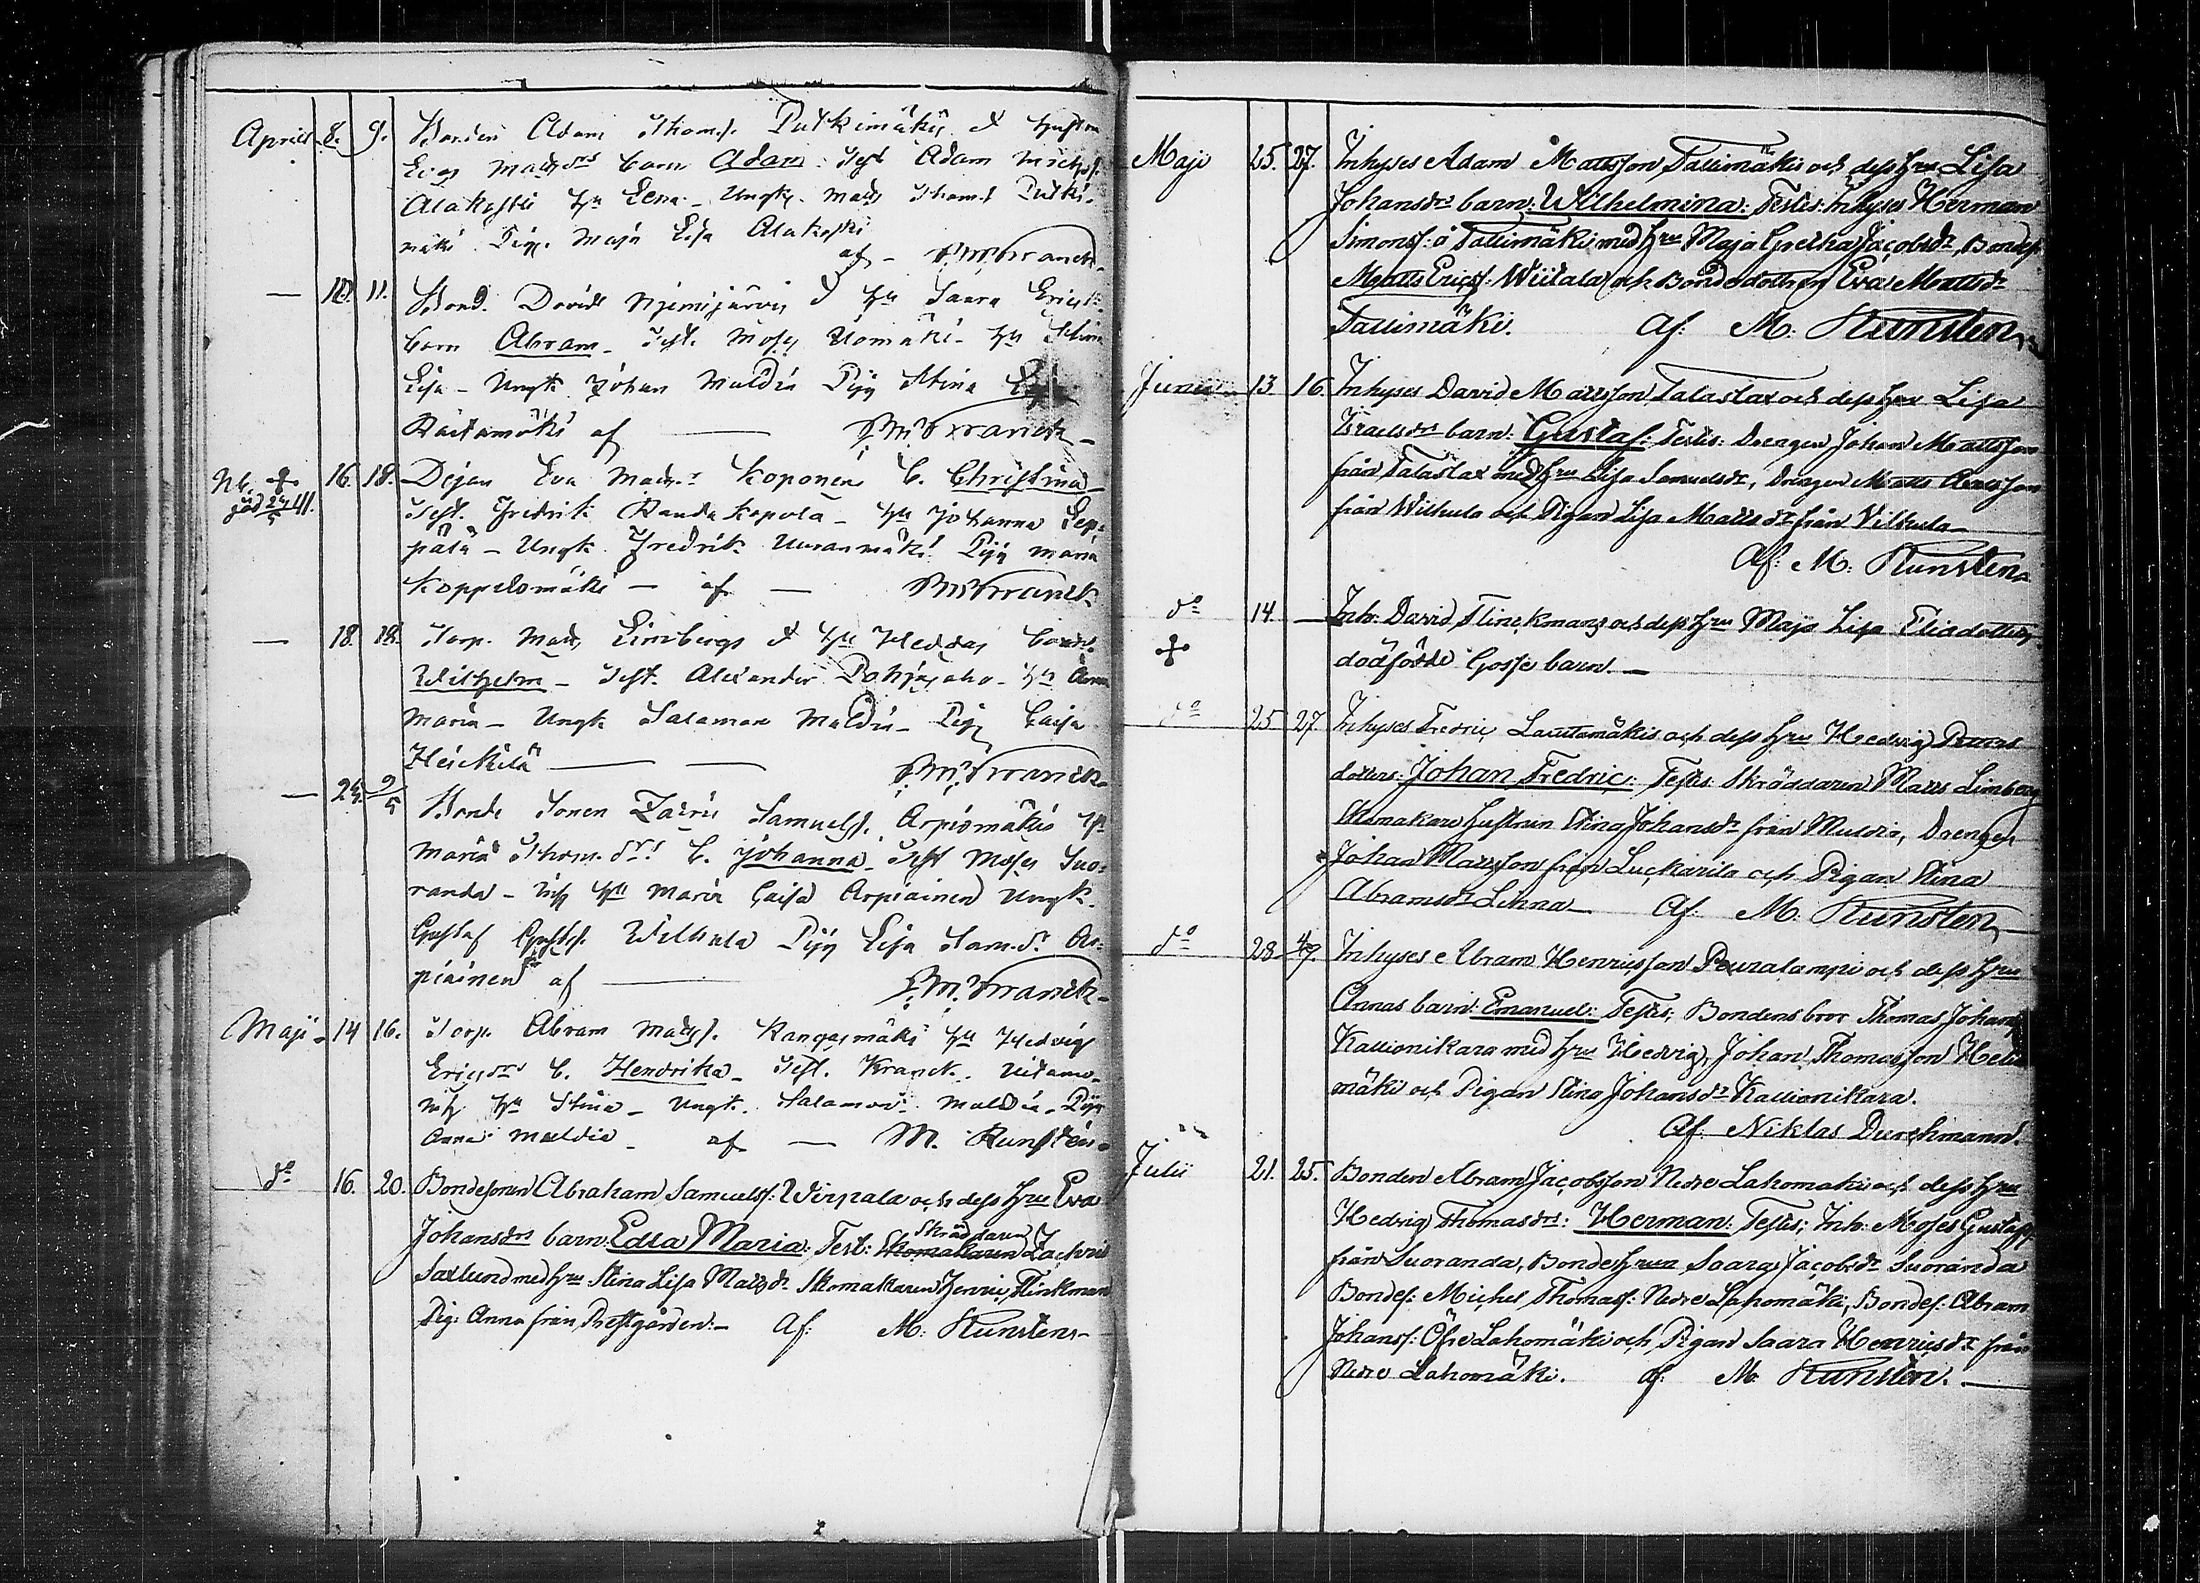 Aprill 8. 9. Bonden Adam Thoms. Putkimäkis & hustru
Evas Matsdrs barn Adam. Test Adam Michels.
Alakoski hu Lena - Ungk. Mats Thoms Putki-
mäki Pig. Maja Lisa Alakoski
af - Franck
— 10. 11. Bond. David Njemijärvis & hu Saara Erics
barn Abram - Test. Moses Uomäki - hu Stina
Lisa - Ungk Johan Muldia Pig Stina
Raitamäki af — Franck
Nb. 16. 18. Pigan Eva Matsdr Koponens b. Christina
död 24/5 Test. Fredrik Randa kopola - hu Johanna Lep-
pälä - Ungk. Fredrik Uuranmäki Pig Maria
Koppelomäki — af — Franck
— 18. 18. Torp. Mats Limbergs & hu Heddas barn
Wilhelm - Test. Alexander Pohjasaho - hu Anna
Maria - Ungk Salamon Muldia - Pig Caisa
Heickilä — — Franck
— 24. 2/5 Bonde Sonen Zacris Samuels. Arpiomäkis hu
Maria Thom.drs b. Johanna - Test Moses Suo-
randa - inh hu Maria Caisa Arpiainen Ungk.
Gustaf Gustfs. Wilkula Pig Lisa Sam.dr Ar-
piainen af — Franck
Maji 14 16. Torp. Abram Mats. Kangasmäki hu Hedvig
Ericsdrs b. Hendrika - Test. Kranck.
hu Stina - Ungk. Salamon Muldia - Pig
Anna Muldia - af — M. Runsten
do 16. 20. Bondesonen Abraham Samuels: Wirzala och dess Hru Eva
Johansdrs barn: Edla Maria: Test: Skomakaren Skräddaren Zachris
Saxlund med Hru Stina Lisa Matsdr Skomakaren Henric Flinkman
Pig: Anna från Prestgården: - Af: M: Runsten -
Maji 25. 27. Inhyses Adam Mattsson Tallimäkis och dess Hru Lisa
Johansdrs barn: Wilhelmina: Testis: Inhyses Herman
Simonss: å Tallimäki med Hru Maja Gretha Jacobsdr, Bondes
Matts Erics: Wiitala och Bondedottren Eva Mattsdr
Tallimäki. Af: M: Runsten
Junii 13 16. Inhyses David Mattsson Talaslax och dess Hru Lisa
Israelsdrs barn: Gustaf: Testis: Drengen Johan Mattsson
från Talaslax med Hru Lisa Samuelsdr, Drengen Matts
från Wilkula och Pigan Lisa Mattsdr från Vilkula -
Af: M: Runsten
do 14 — Inh: David Flinckmans och dess Hru Maja Lisa Eliædotters
dödfödde Gosse barn. —
do 25 27. Inhyses Fredric Lautamäkis och dess Hru Hedvig
dotters: Johan Fredric: Testis: Skräddaren Matts Limberg
Hustrun Stina Johansdr från Muldia, Drengen
Johan Mattsson från Luckarila och Pigan Stina
Abramsdr Linna - Af: M. Runsten
do 28 Inhyses Abram Henricsson Peuralampi och dess Hru
Annas barn: Emanuel: Testis: Bondens bror Thomas Johans
Kallionikara med Hru Hedvig, Johan Thomasson
mäki och Pigan Stina Johansdr Kallionikara.
Af Niklas Durchmann.
Julii 21. 25. Bonden Abram Jacobsson Nedre Lahomäkis och dess Hru
Hedvig Thomasdrs: Herman: Testis; Inh: Moses Gustafs
från Suoranda, Bonde Hrun Saara Jacobsdr Suoranda
Bondes: Michel Thomass: Nedre Lahomäki, Bondes: Abram
Johanss: Öfre Lahomäki och Pigan Saara Henricsdr från
Nedre Lahomäki. af M Runsten. —